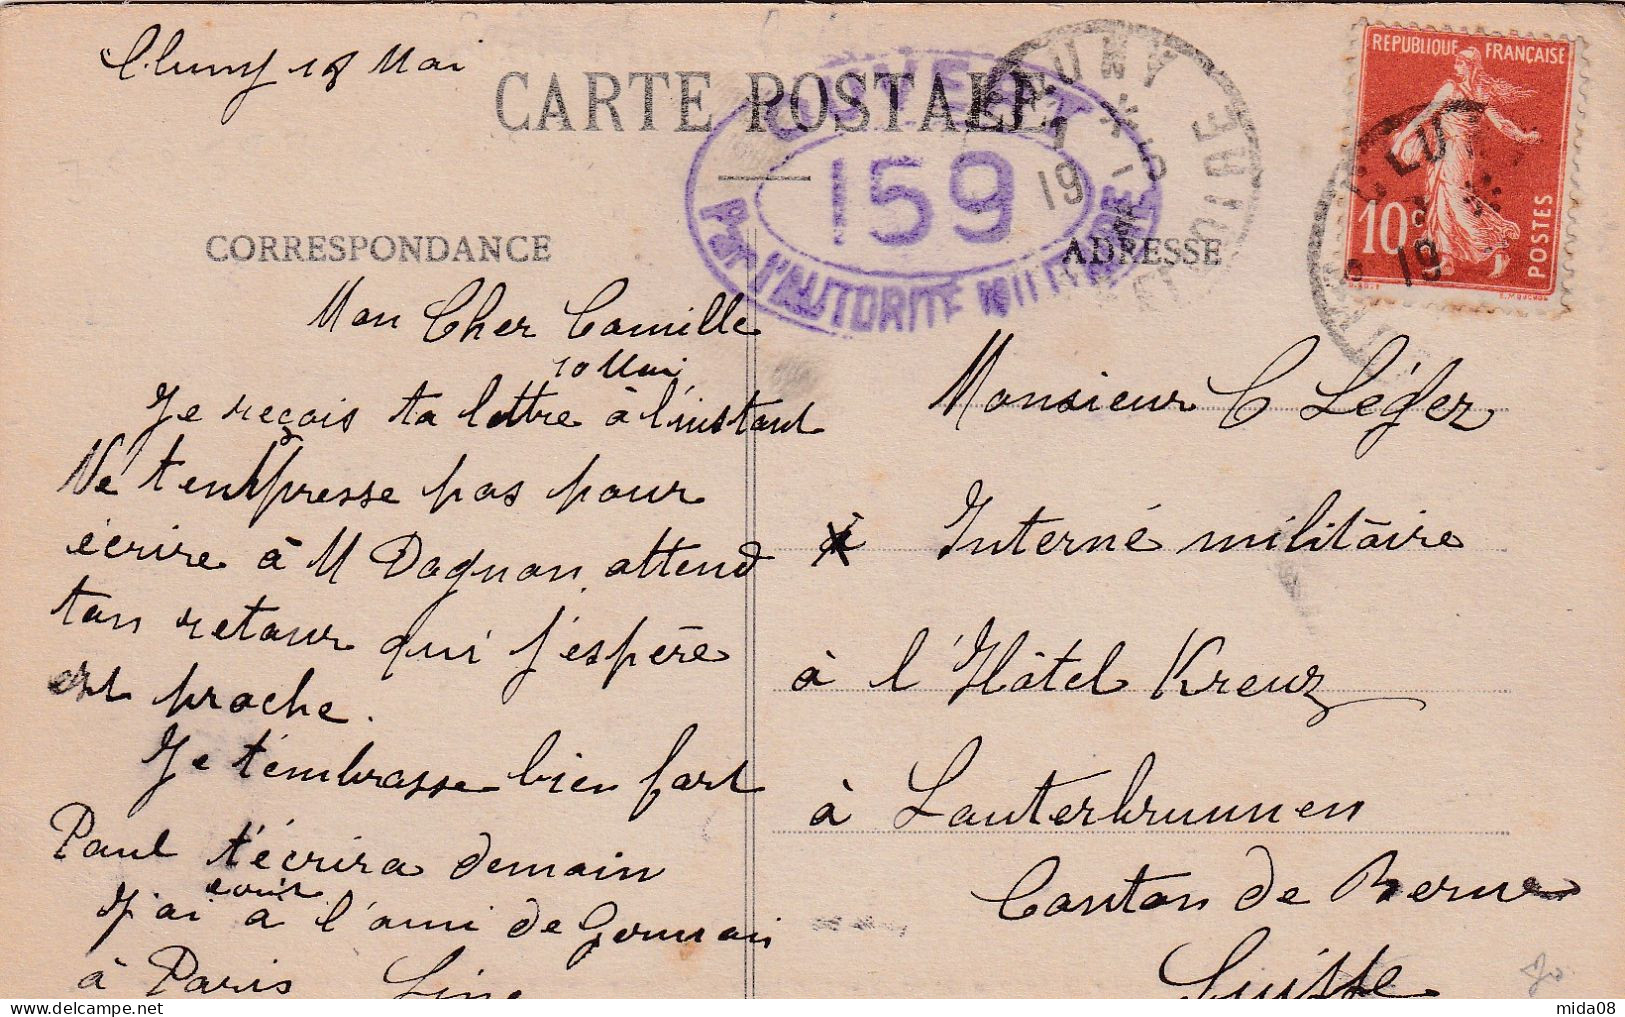 Cluny 18 Mai
CARTE POSTALE
OUVERT
159
Par l'AUTORITÉ MILITAIRE
CLUNY
19
LOIRE
REPUBLIQUE FRANÇAISE
10c
POSTES
CLUNY
19
CORRESPONDANCE
ADRESSE
Mon Cher Camille
10 Mai
Je reçois ta lettre à l'instant
Ne t'empresse pas pour
écrire à M Dagnan, attend
ton retour qui j'espère
est proche.
Je t'embrasse bien fort
Paul t'écrira demain
écrit
J'ai à l'ami de Germain
à Paris Line
Monsieur C Léger
Interné militaire
à l'Hôtel Kreuz
à Lauterbrunnen
Canton de Berne
Suisse
mida08